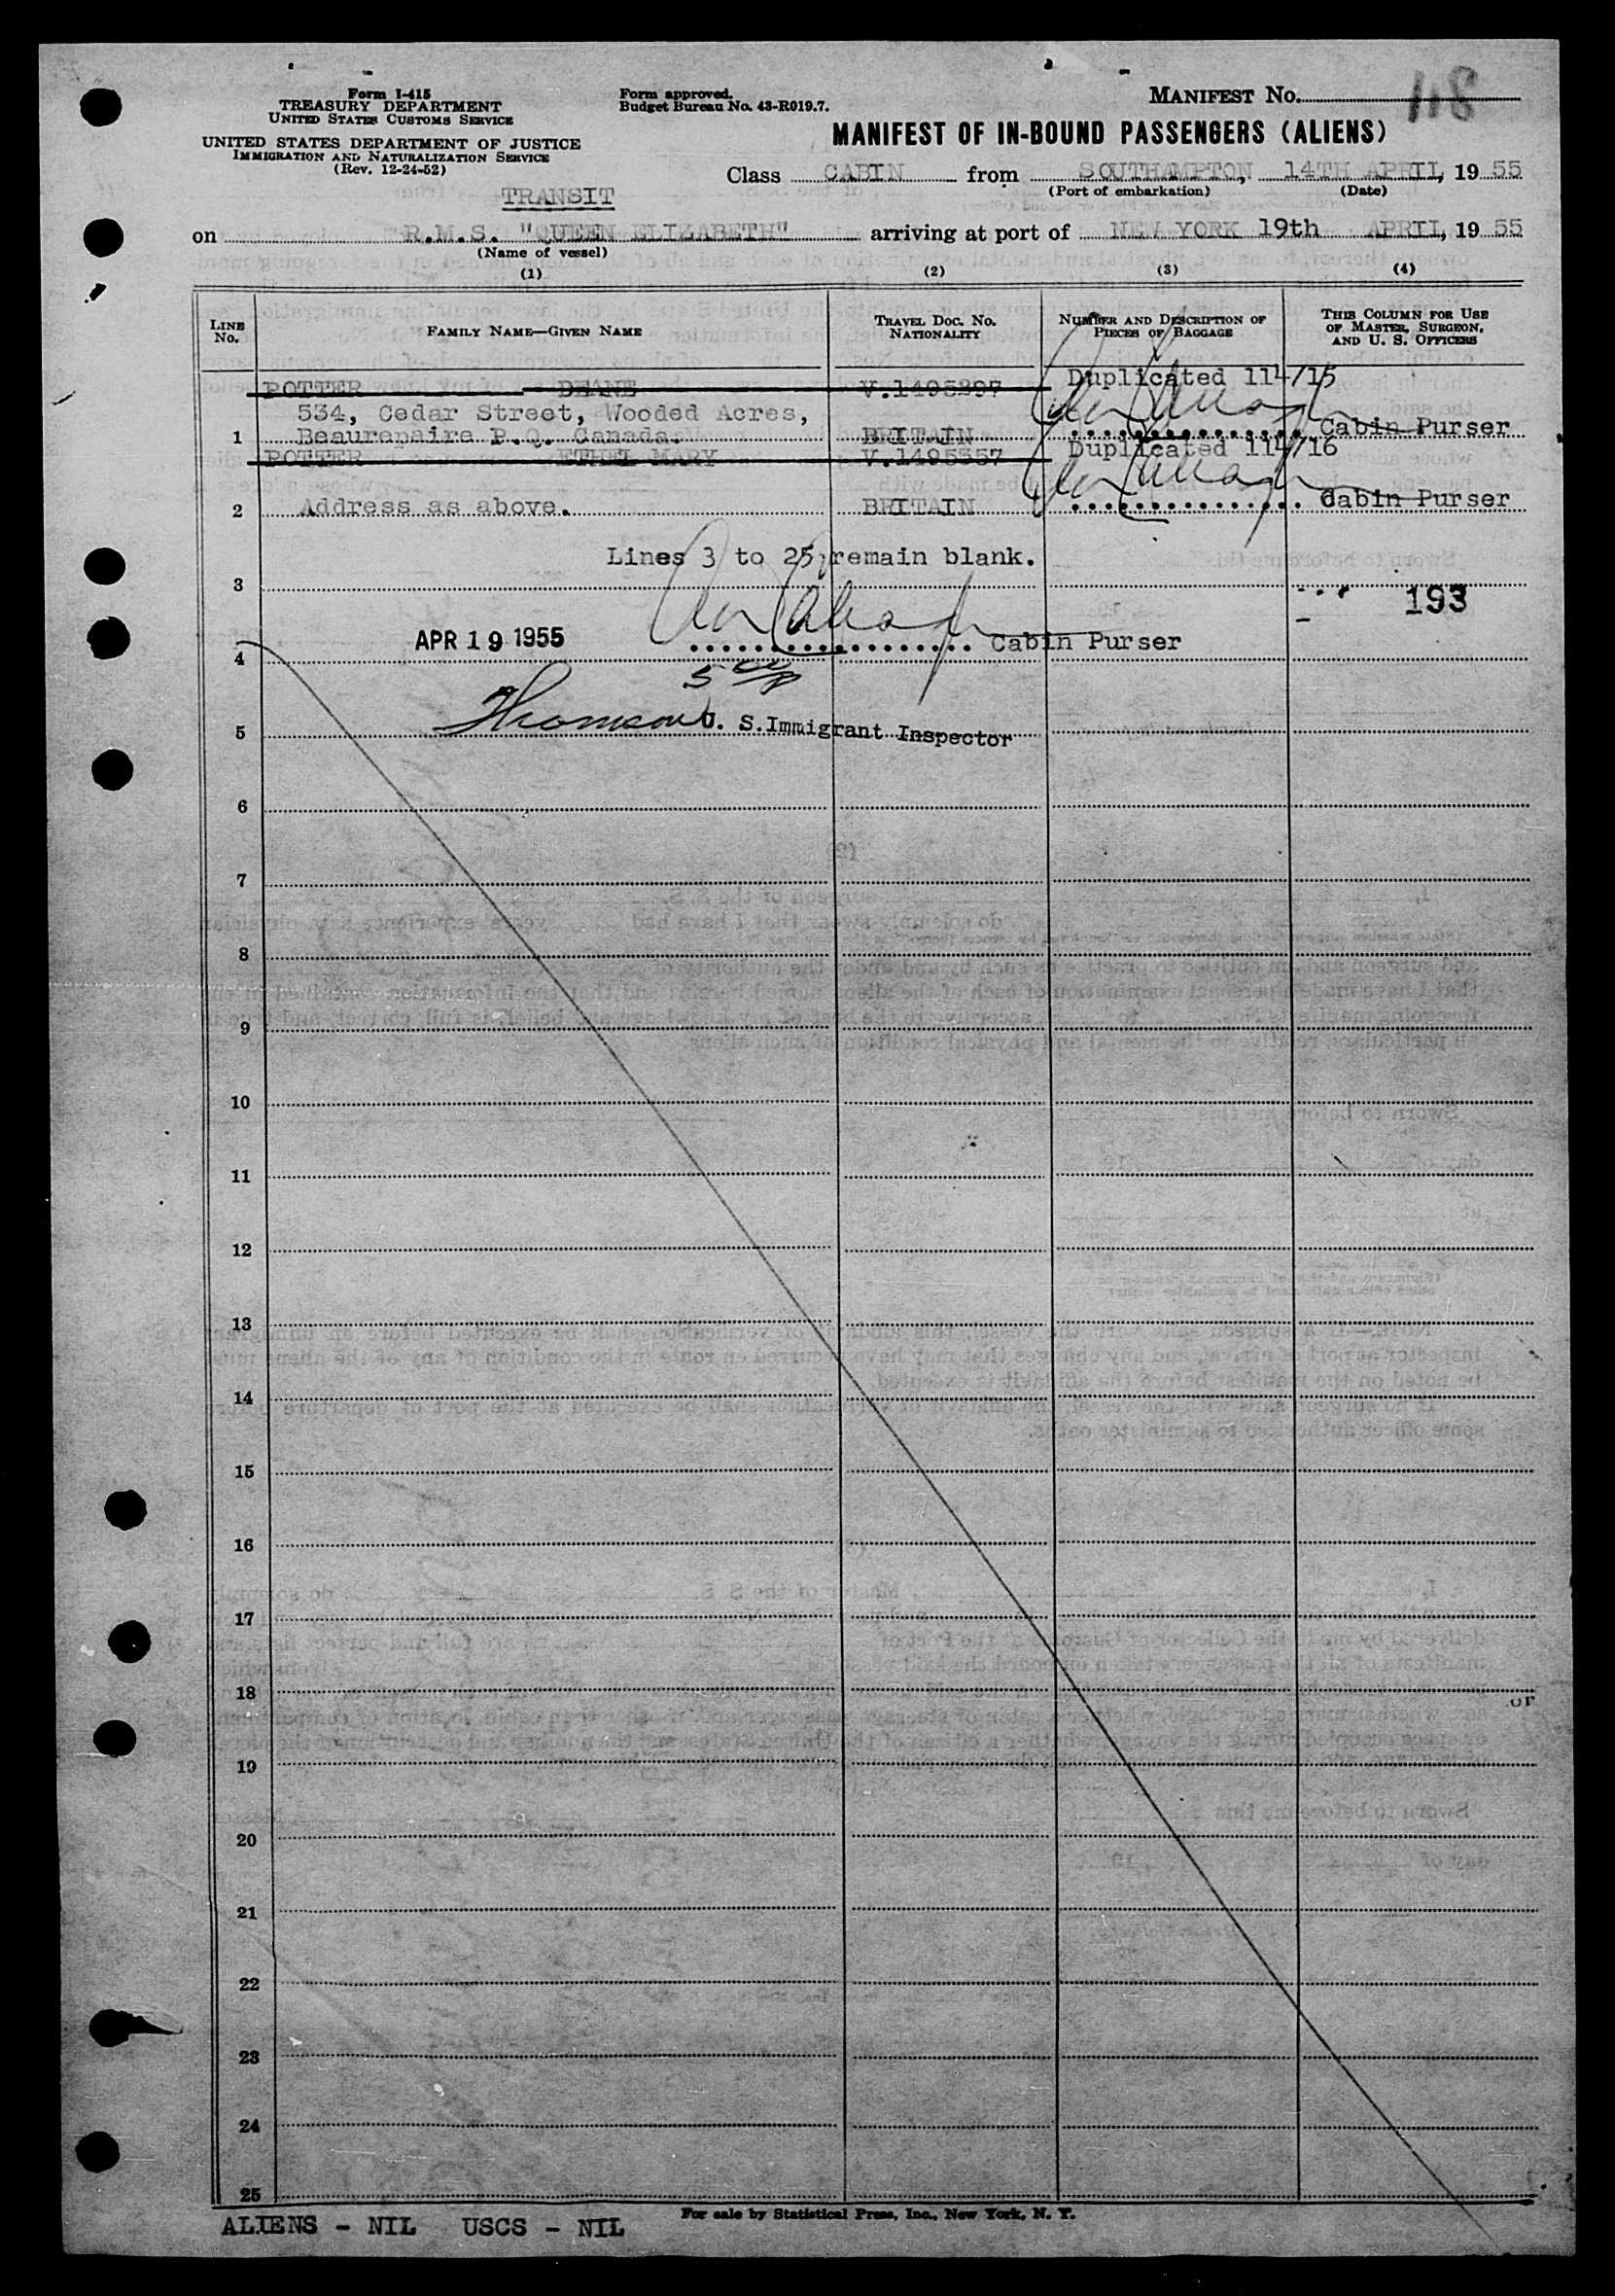 Form I-415
TREASURY DEPARTMENT
UNITED STATES CUSTOMS SERVICE
UNITED STATES DEPARTMENT OF JUSTICE
IMMIGRATION AND NATURALIZATION SERVICE
(Rev. 12-24-52)
Form approved.
Budget Bureau No. 43-R019.7.
MANIFEST No.
MANIFEST OF IN-BOUND PASSENGERS (ALIENS)
Class CABIN from SOUTHAMPTON, 14TH APRIL, 19 55
(Port of embarkation) (Date)
TRANSIT
on R.M.S. "QUEEN ELIZABETH" arriving at port of NEW YORK 19th APRIL, 19 55
(Name of vessel)
(1) (2) (3) (4)
LINE No. FAMILY NAME—GIVEN NAME TRAVEL DOC. No. NATIONALITY NUMBER AND DESCRIPTION OF PIECES OF BAGGAGE THIS COLUMN FOR USE OF MASTER, SURGEON, AND U. S. OFFICERS
POTTER DEANE V.1495297 Duplicated 114/15
534, Cedar Street, Wooded Acres,
1 Beaurepaire P.Q. Canada. BRITAIN Cabin Purser
POTTER ETHEL MARY V.1495357 Duplicated 114/16
2 Address as above. BRITAIN Cabin Purser
Lines 3 to 25 remain blank.
3 193
APR 19 1955 Cabin Purser
4
Thomson U. S. Immigrant Inspector
5
6
7
8
9
10
11
12
13
14
15
16
17
18
19
20
21
22
23
24
25
ALIENS - NIL USCS - NIL
For sale by Statistical Press, Inc., New York, N. Y.